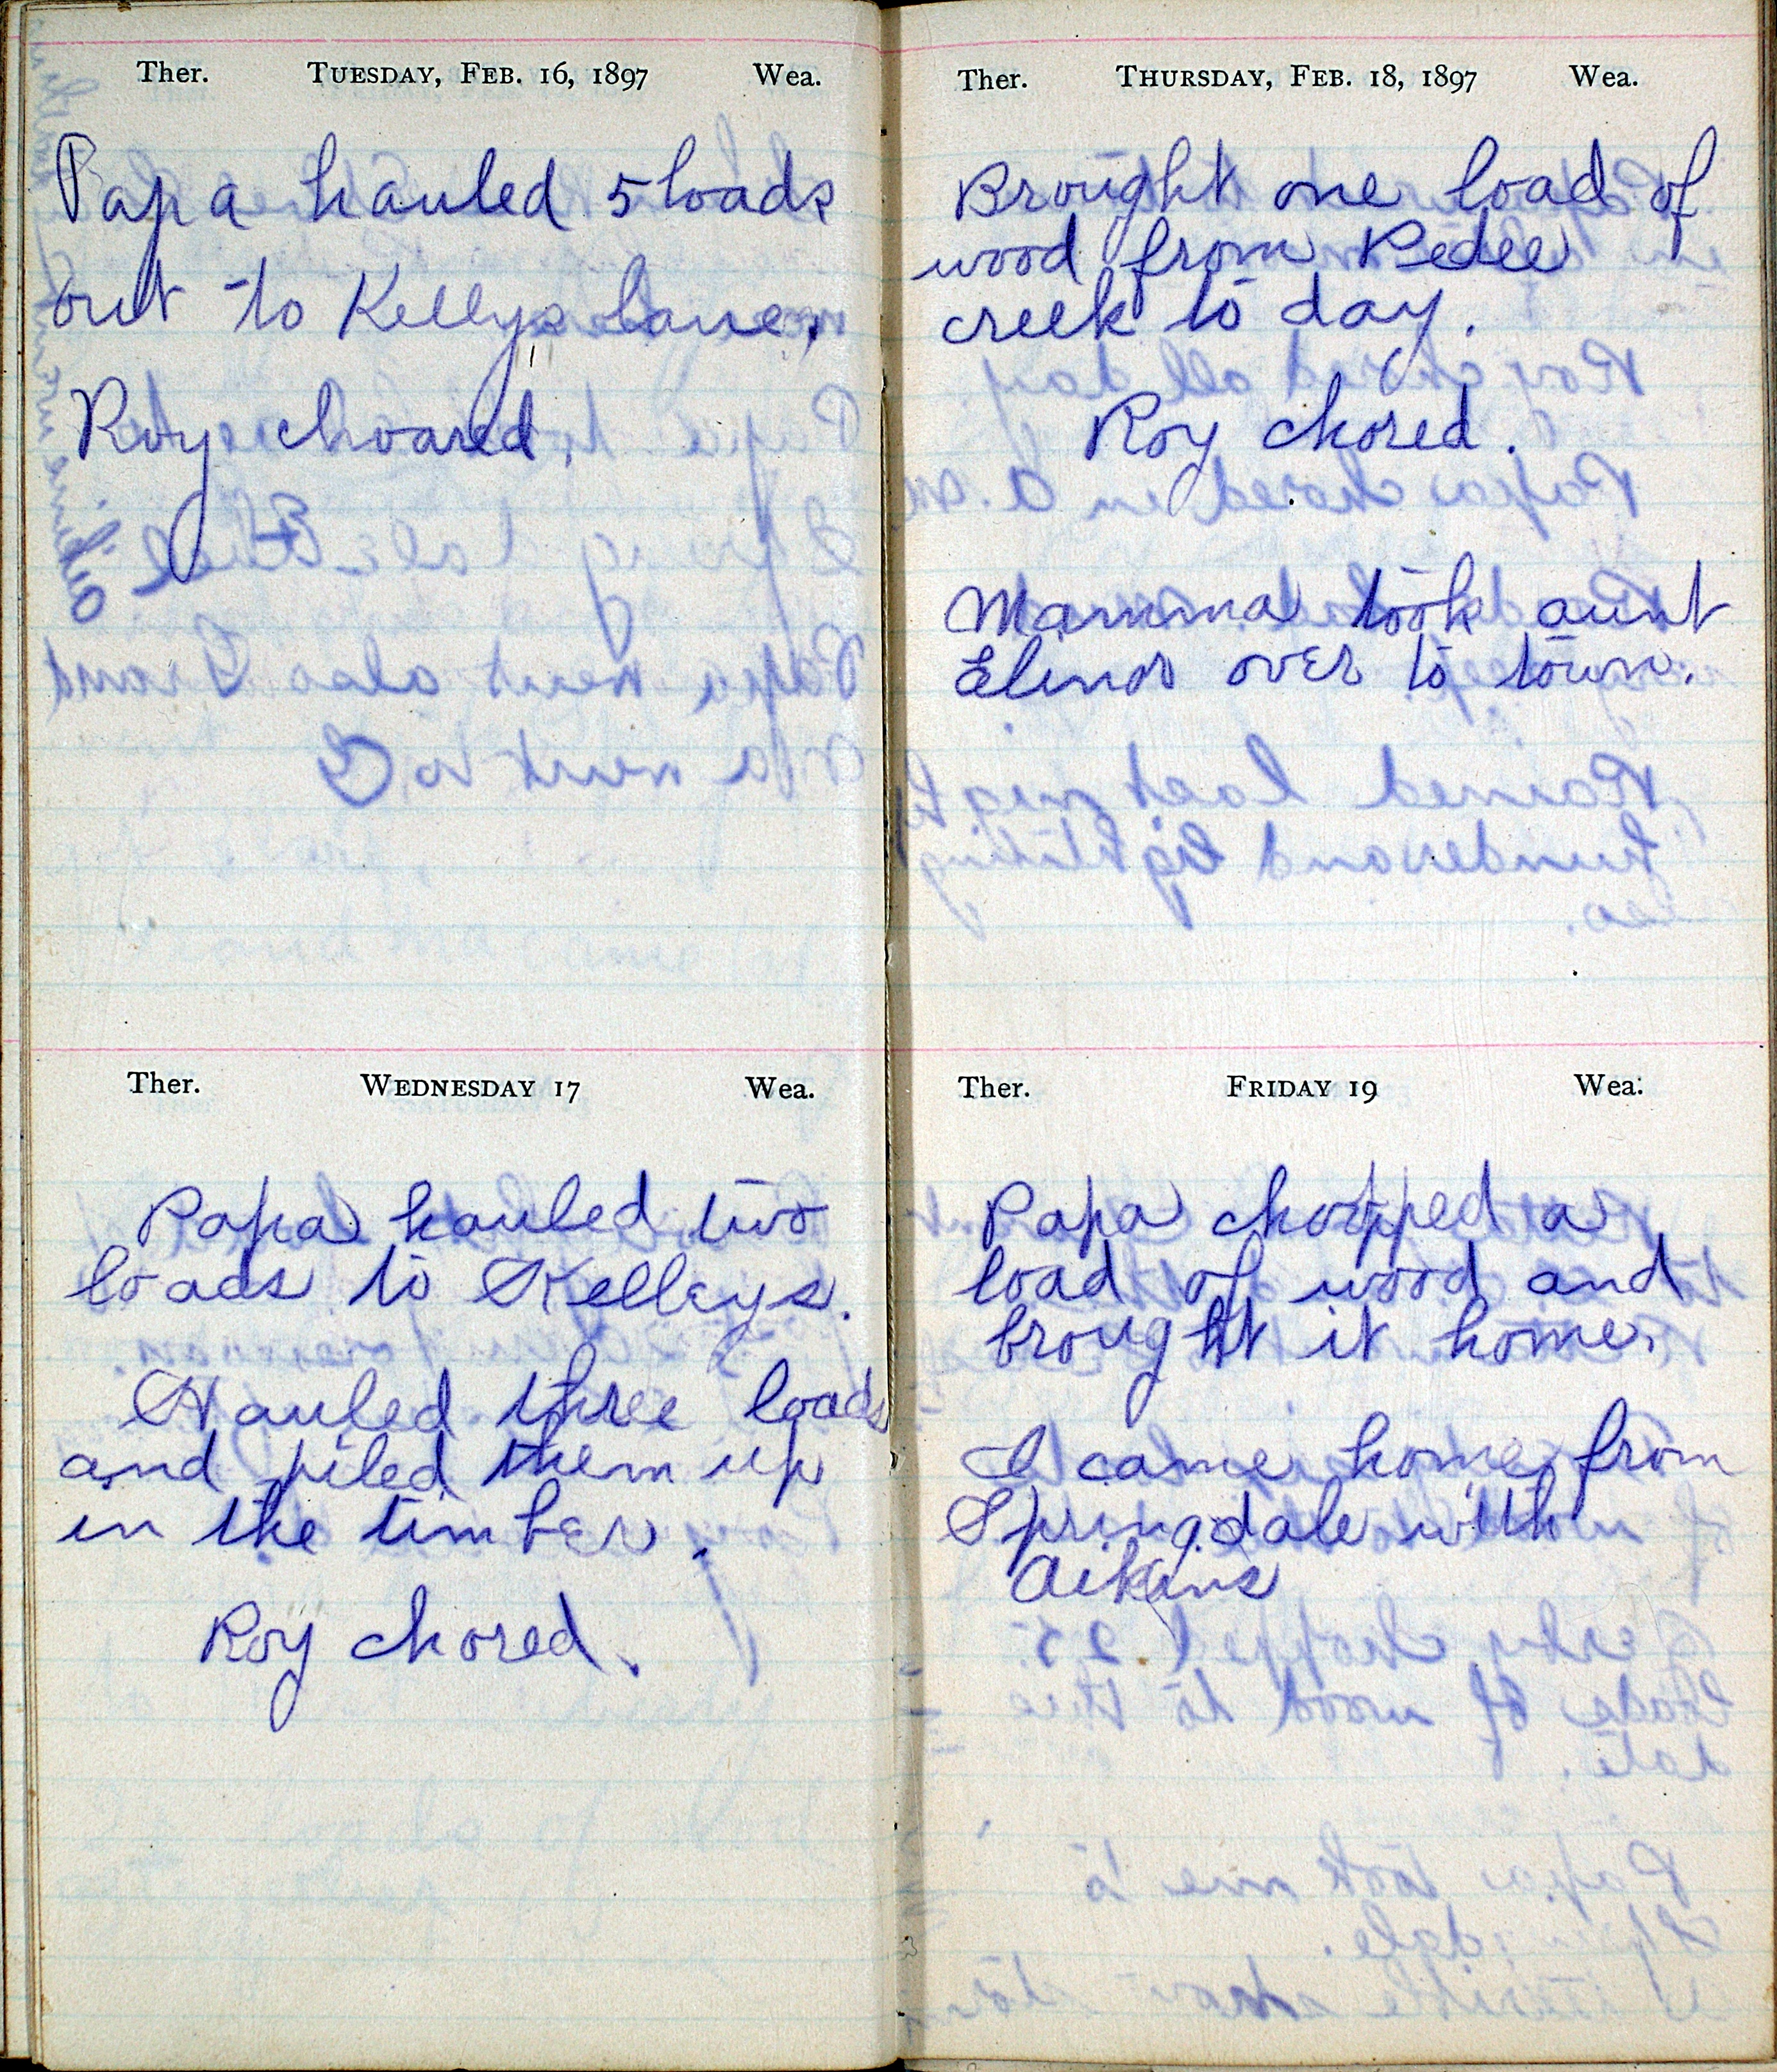 Ther. TUESDAY, FEB. 16, 1897 Wea.
Papa hauled 5 loads
out to Kellys lane.
Roy choared.
Ther. WEDNESDAY 17 Wea.
Papa hauled two
loads to Kelleys.
Hauled three loads
and piled them up
in the timber.
Roy chored.
Ther. THURSDAY, FEB. 18, 1897 Wea.
Brought one load of
wood from Pedee
creek to day.
Roy chored.
Mamma took aunt
Elinor over to town.
Ther. FRIDAY 19 Wea.
Papa chopped a
load of wood and
brought it home.
I came home from
Springdale with
Aikins